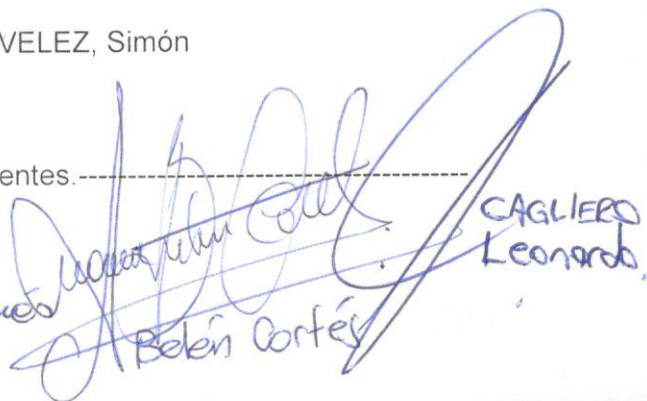 VELEZ, Simón
entes.-------------------------------------
CAGLIERO
Leonardo.
Belén Cortés